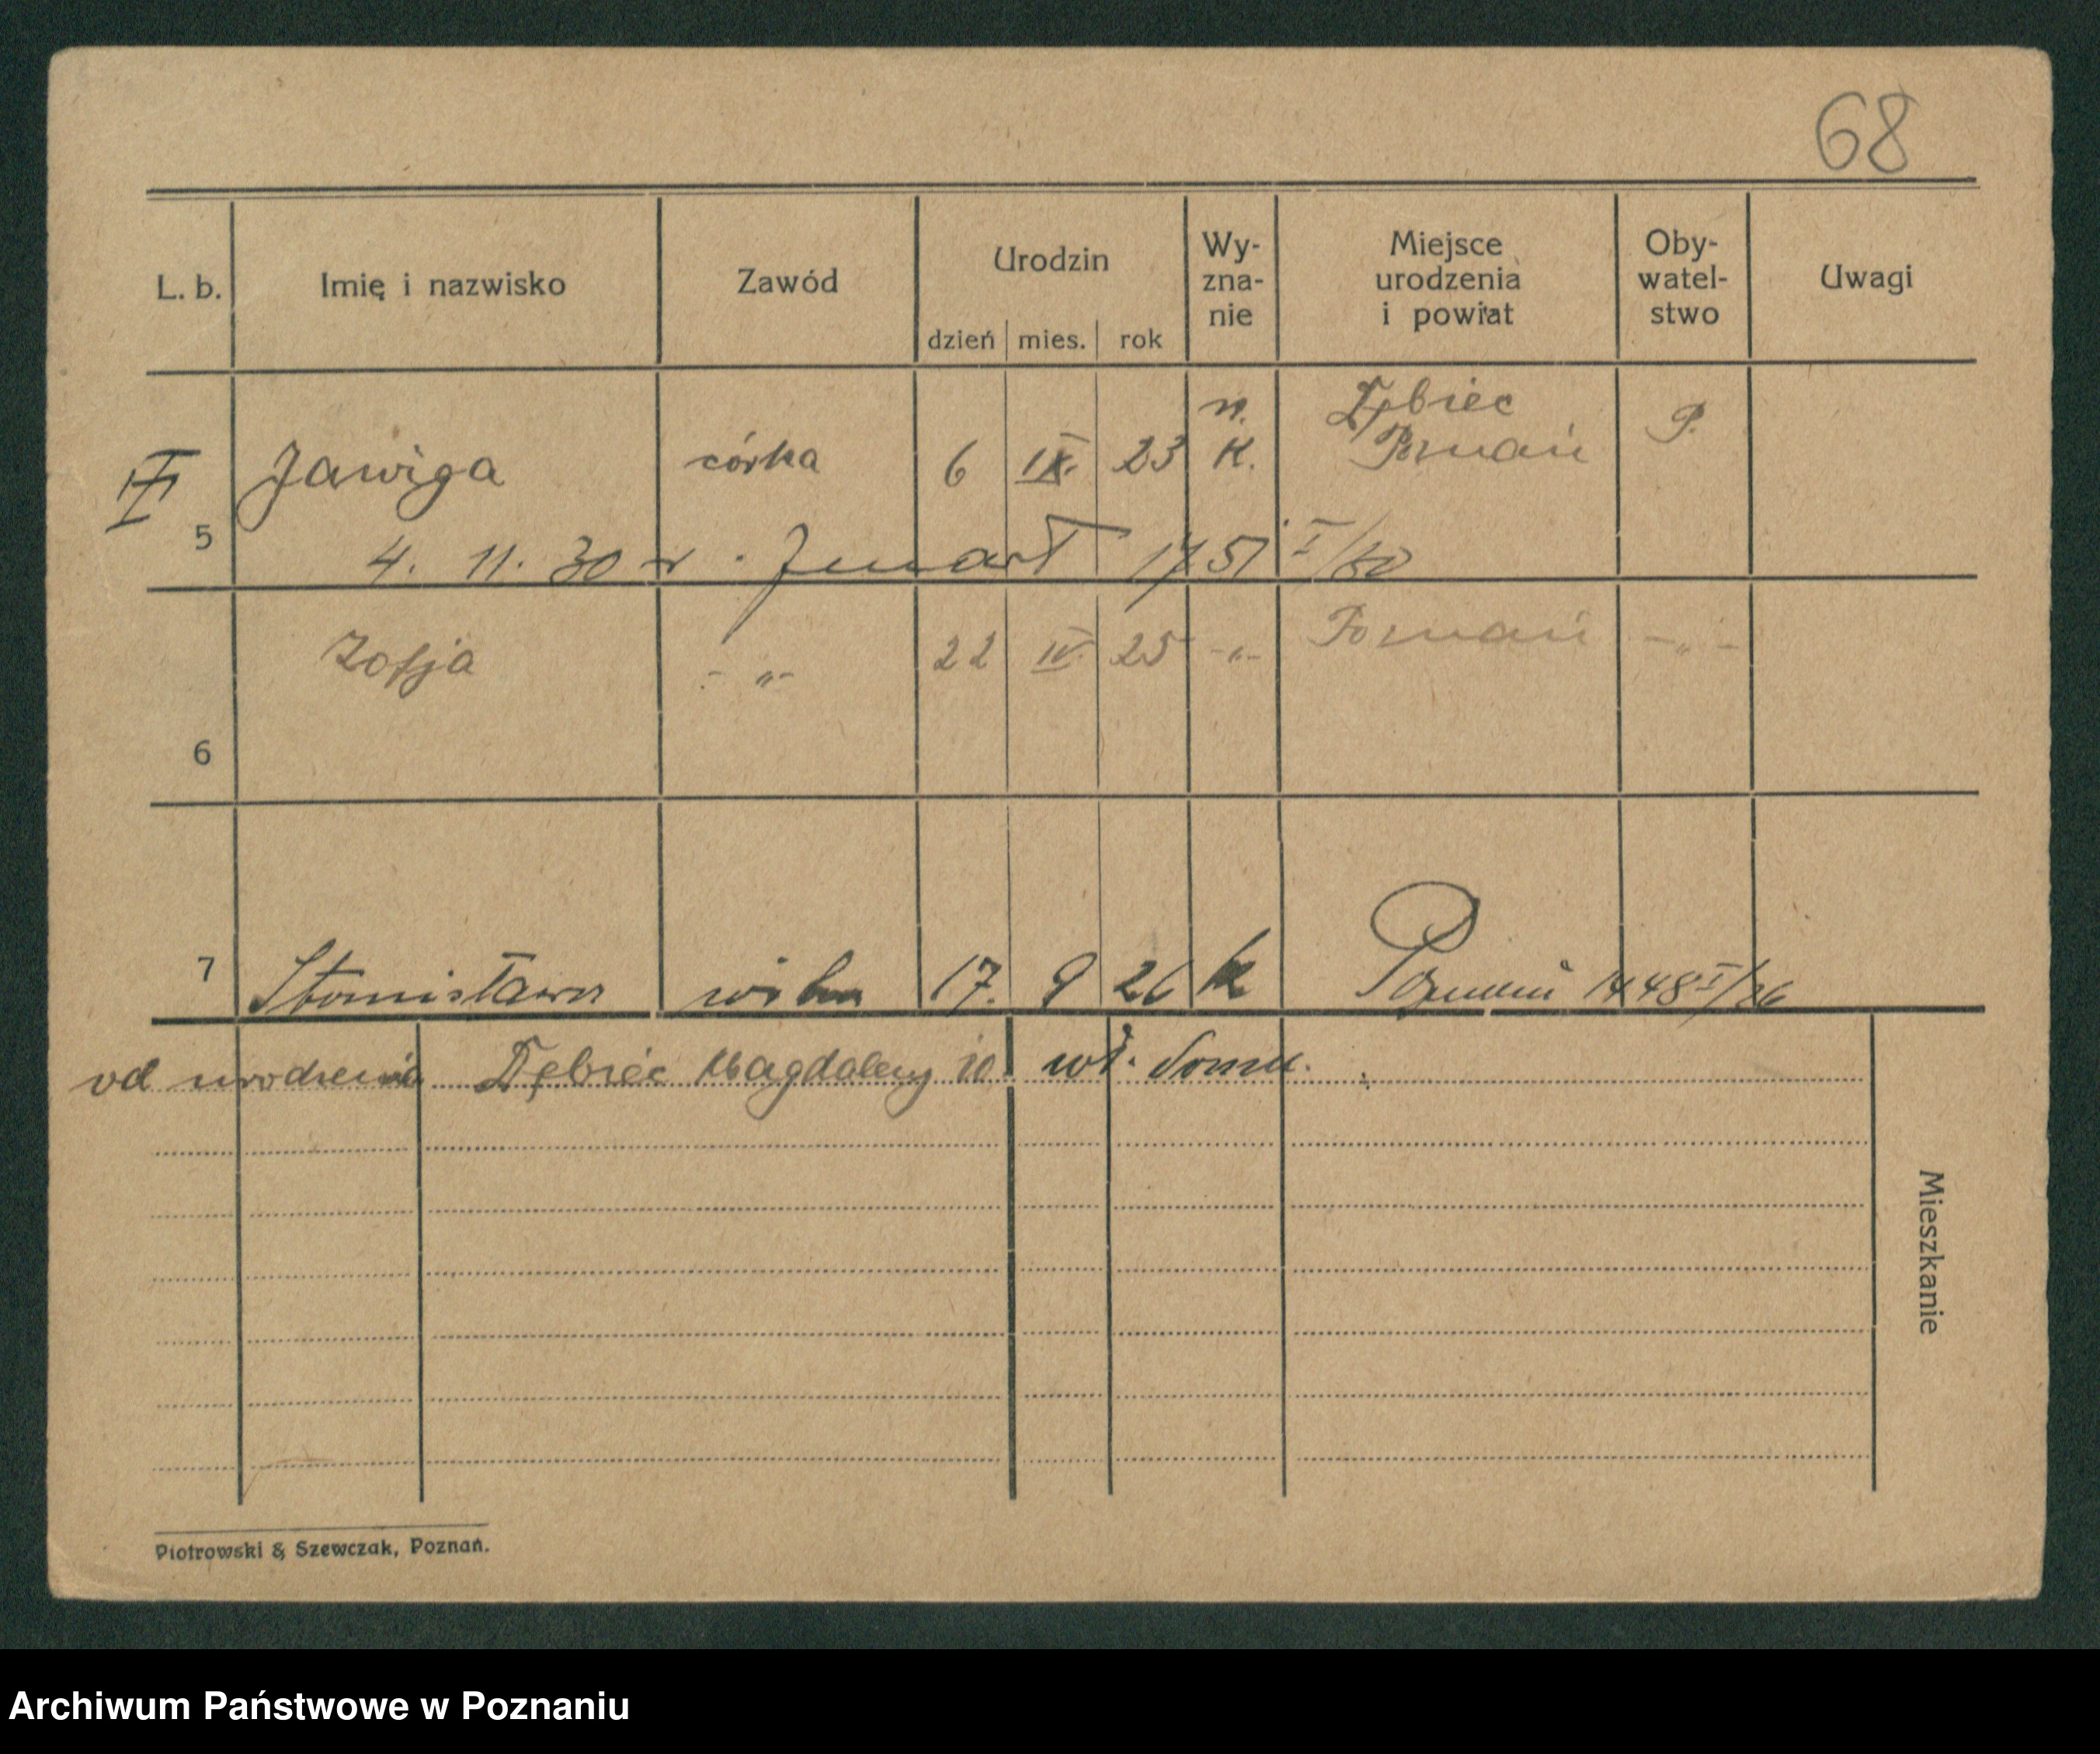 68
L. b. Imię i nazwisko Zawód Urodzin dzień mies. rok Wy-zna-nie Miejsce urodzenia i powiat Oby-watel-stwo Uwagi
5 Jawiga córka 6 IX. 23 n. K. Dębiec Poznań P.
4. 11. 30 r. 1751 I/30
6 Zofja - „ - 22 IV. 25 - „ - Poznań - „ -
7 Stanisława 17. 9 26 k Poznań 1448 I/26
od urodzenia Dębiec Magdaleny 10. wł. domu.
Mieszkanie
Piotrowski & Szewczak, Poznań.
Archiwum Państwowe w Poznaniu